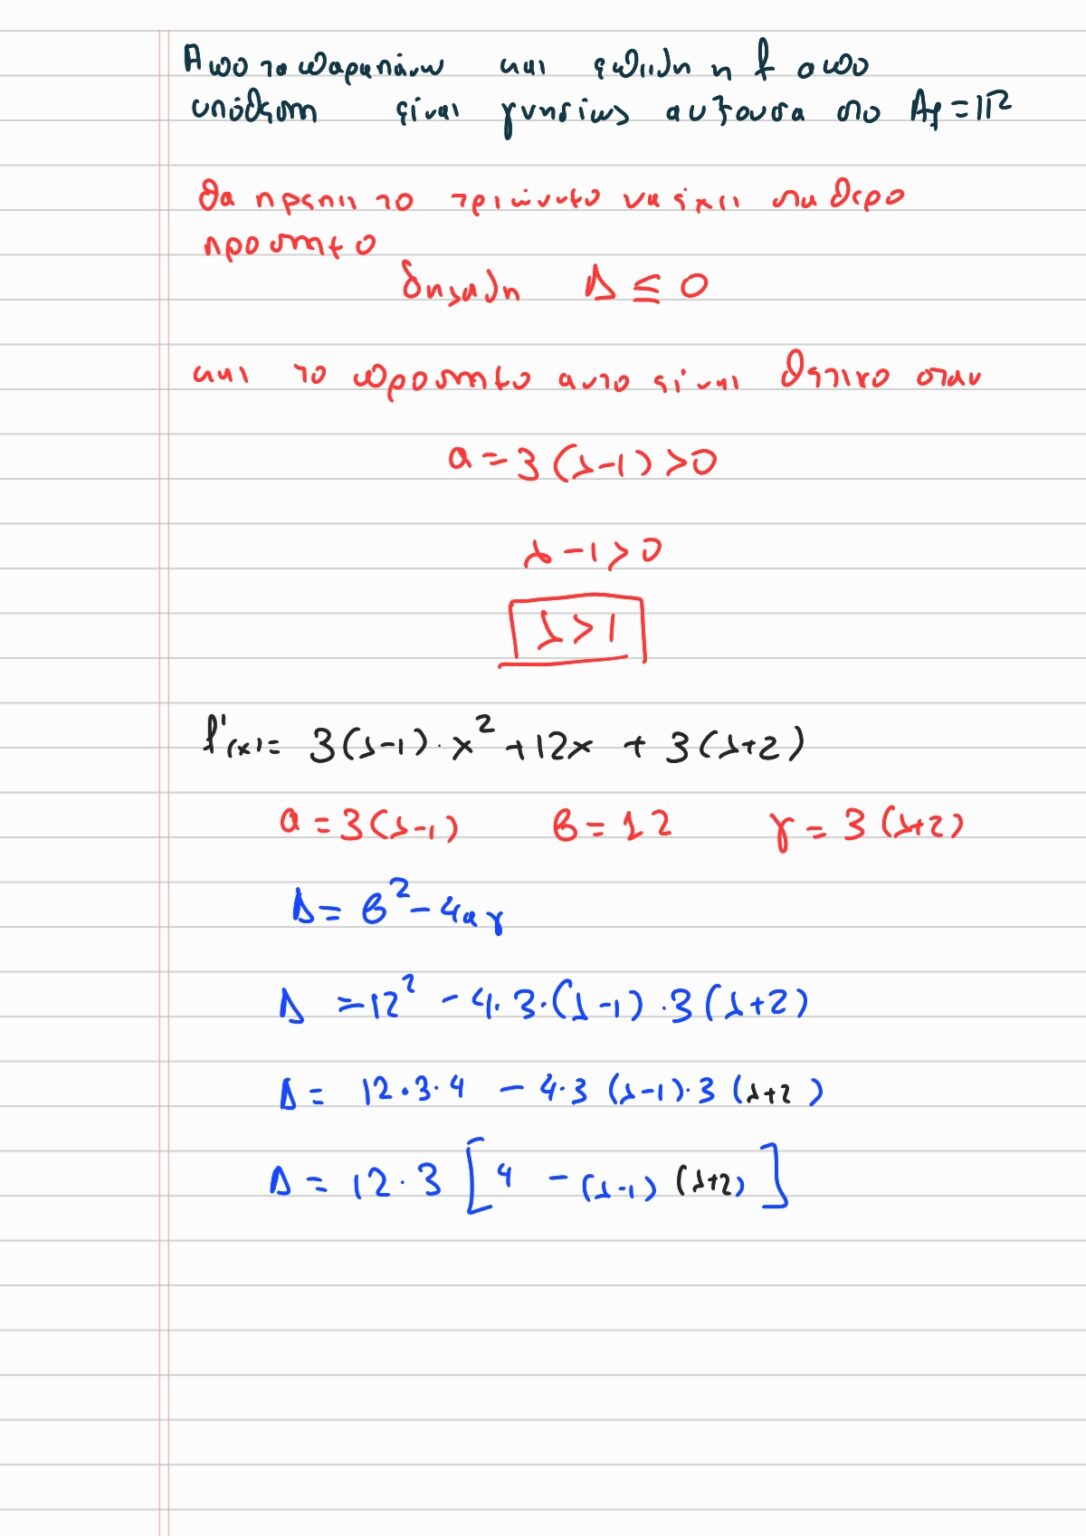 Απο το παραπάνω και επειδη η f απο
υπόθεση είναι γνησίως αυξουσα στο Af = ℝ
θα πρεπει το τριώνυμο να έχει σταθερο
προσημο
δηλαδη Δ ≤ 0
και το προσημο αυτο είναι θετικο οταν
α = 3(λ-1) > 0
λ - 1 > 0
λ > 1
f'(x) = 3(λ-1)·x² + 12x + 3(λ+2)
α = 3(λ-1) β = 12 γ = 3(λ+2)
Δ = β² - 4αγ
Δ = 12² - 4·3·(λ-1)·3(λ+2)
Δ = 12·3·4 - 4·3(λ-1)·3(λ+2)
Δ = 12·3[4 - (λ-1)(λ+2)]